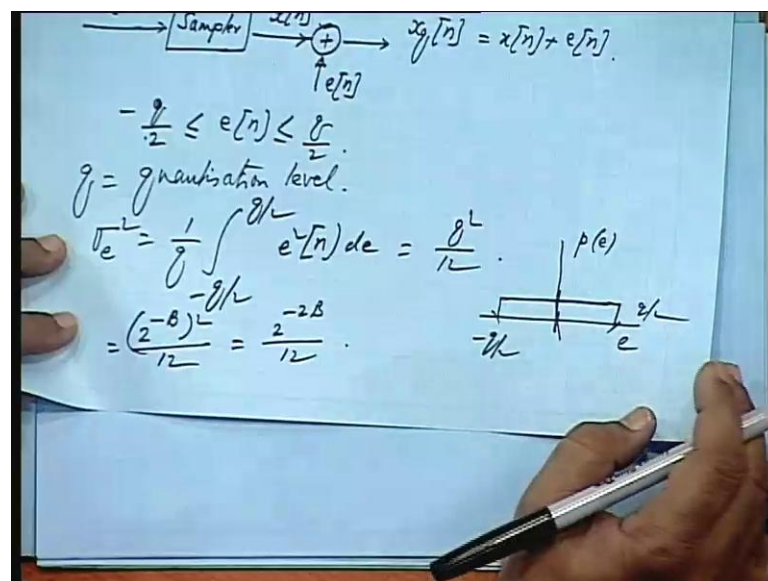 Sampler x[n] + x_q[n] = x[n] + e[n].
e[n]
-q/2 ≤ e[n] ≤ q/2.
q = quantisation level.
σ_e² = 1/q ∫_{-q/2}^{q/2} e²[n] de = q²/12.
p(e)
-q/2 q/2
e
= (2^{-B})²/12 = 2^{-2B}/12.